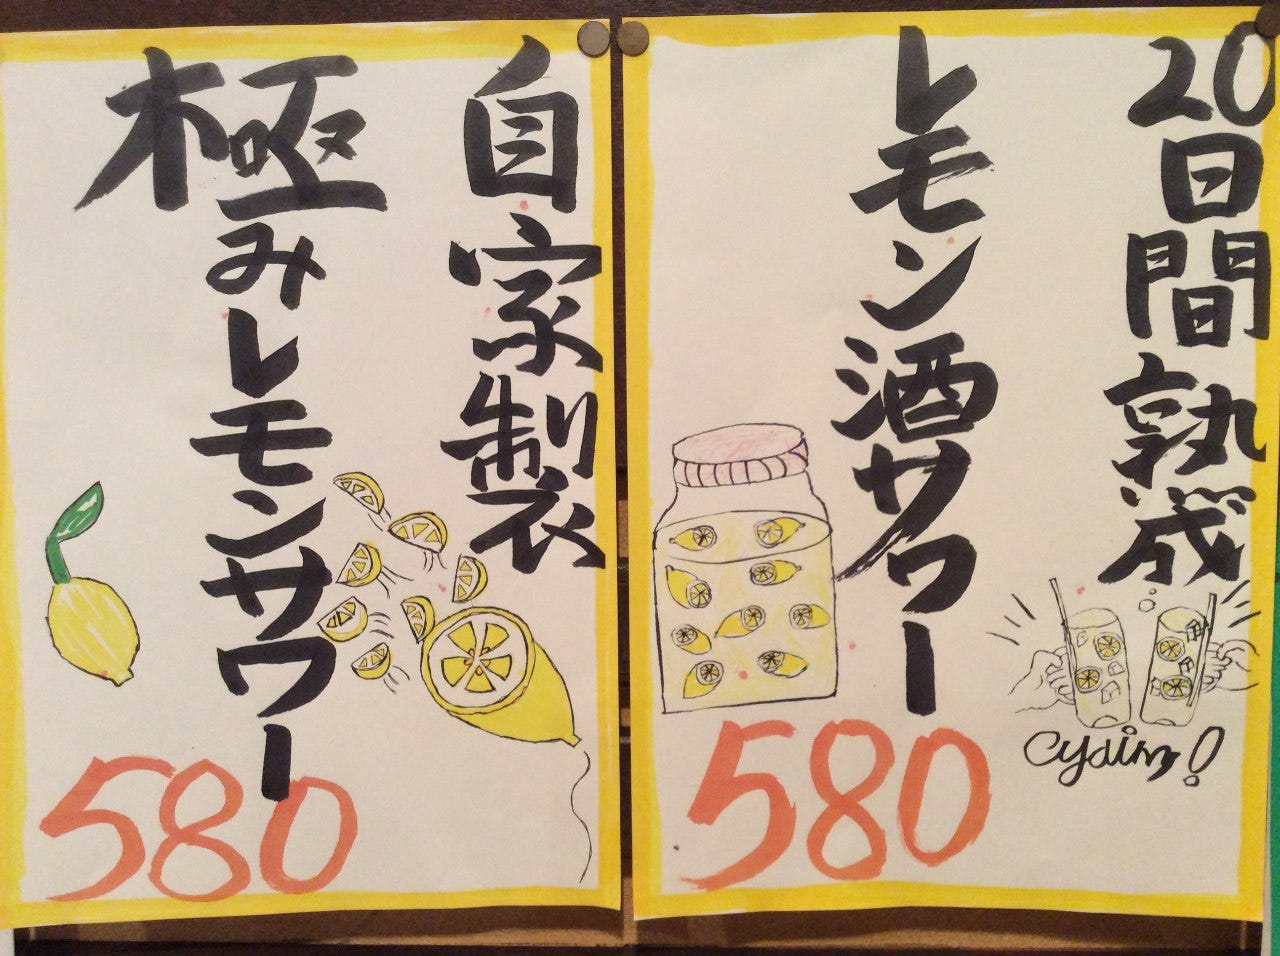 20日間熟成
レモン酒サワー
580
自家製
極みレモンサワー
580